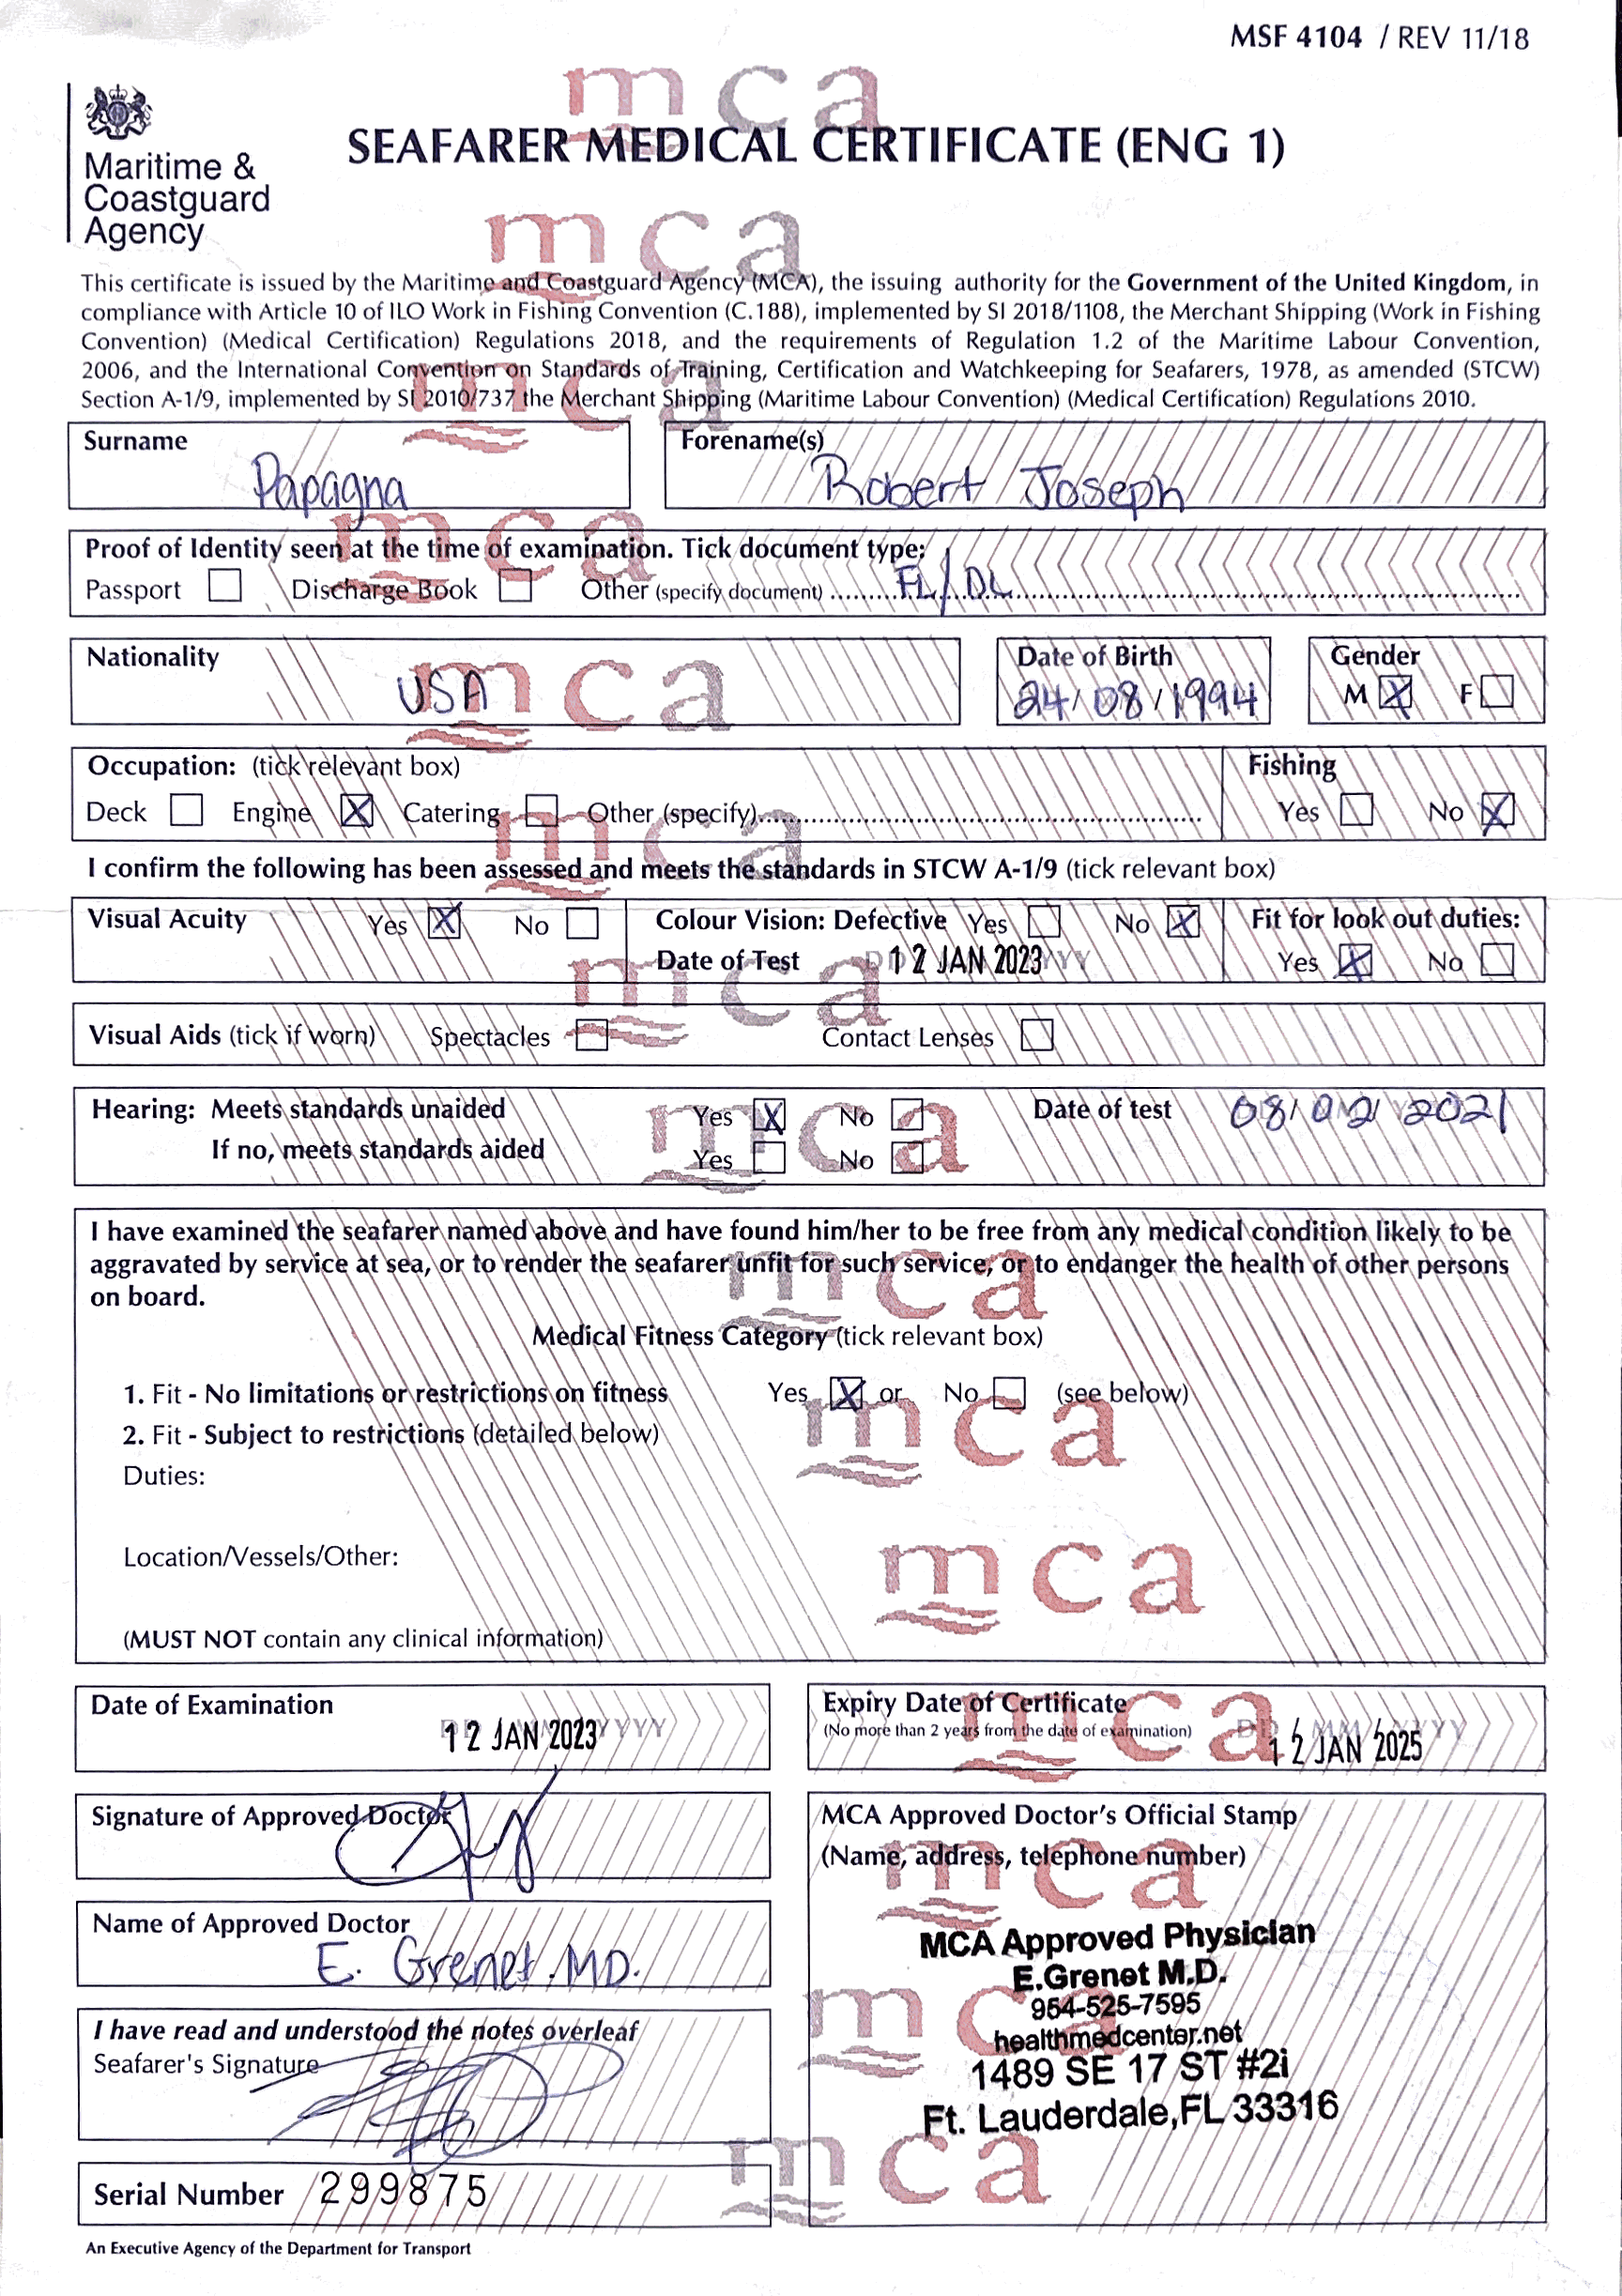 MSF 4104 / REV 11/18
Maritime &
Coastguard
Agency
SEAFARER MEDICAL CERTIFICATE (ENG 1)
This certificate is issued by the Maritime and Coastguard Agency (MCA), the issuing authority for the Government of the United Kingdom, in
compliance with Article 10 of ILO Work in Fishing Convention (C.188), implemented by SI 2018/1108, the Merchant Shipping (Work in Fishing
Convention) (Medical Certification) Regulations 2018, and the requirements of Regulation 1.2 of the Maritime Labour Convention,
2006, and the International Convention on Standards of Training, Certification and Watchkeeping for Seafarers, 1978, as amended (STCW)
Section A-1/9, implemented by SI 2010/737 the Merchant Shipping (Maritime Labour Convention) (Medical Certification) Regulations 2010.
Surname Forename(s)
Papagna Robert Joseph
Proof of Identity seen at the time of examination. Tick document type:
Passport Discharge Book Other (specify document) FL/DL
Nationality Date of Birth Gender
USA 24/08/1994 M X F
Occupation: (tick relevant box) Fishing
Deck Engine X Catering Other (specify) Yes No X
I confirm the following has been assessed and meets the standards in STCW A-1/9 (tick relevant box)
Visual Acuity Yes X No Colour Vision: Defective Yes No X Fit for look out duties:
Date of Test 12 JAN 2023 Yes X No
Visual Aids (tick if worn) Spectacles Contact Lenses
Hearing: Meets standards unaided Yes X No Date of test 08/02/2021
If no, meets standards aided Yes No
I have examined the seafarer named above and have found him/her to be free from any medical condition likely to be
aggravated by service at sea, or to render the seafarer unfit for such service, or to endanger the health of other persons
on board.
Medical Fitness Category (tick relevant box)
1. Fit - No limitations or restrictions on fitness Yes X or No (see below)
2. Fit - Subject to restrictions (detailed below)
Duties:
Location/Vessels/Other:
(MUST NOT contain any clinical information)
Date of Examination Expiry Date of Certificate
12 JAN 2023 (No more than 2 years from the date of examination) 12 JAN 2025
Signature of Approved Doctor MCA Approved Doctor's Official Stamp
(Name, address, telephone number)
Name of Approved Doctor
E. Grenet. MD.
MCA Approved Physician
E.Grenet M.D.
954-525-7595
healthmedcenter.net
1489 SE 17 ST #2i
Ft. Lauderdale,FL 33316
I have read and understood the notes overleaf
Seafarer's Signature
Serial Number 299875
An Executive Agency of the Department for Transport
mca